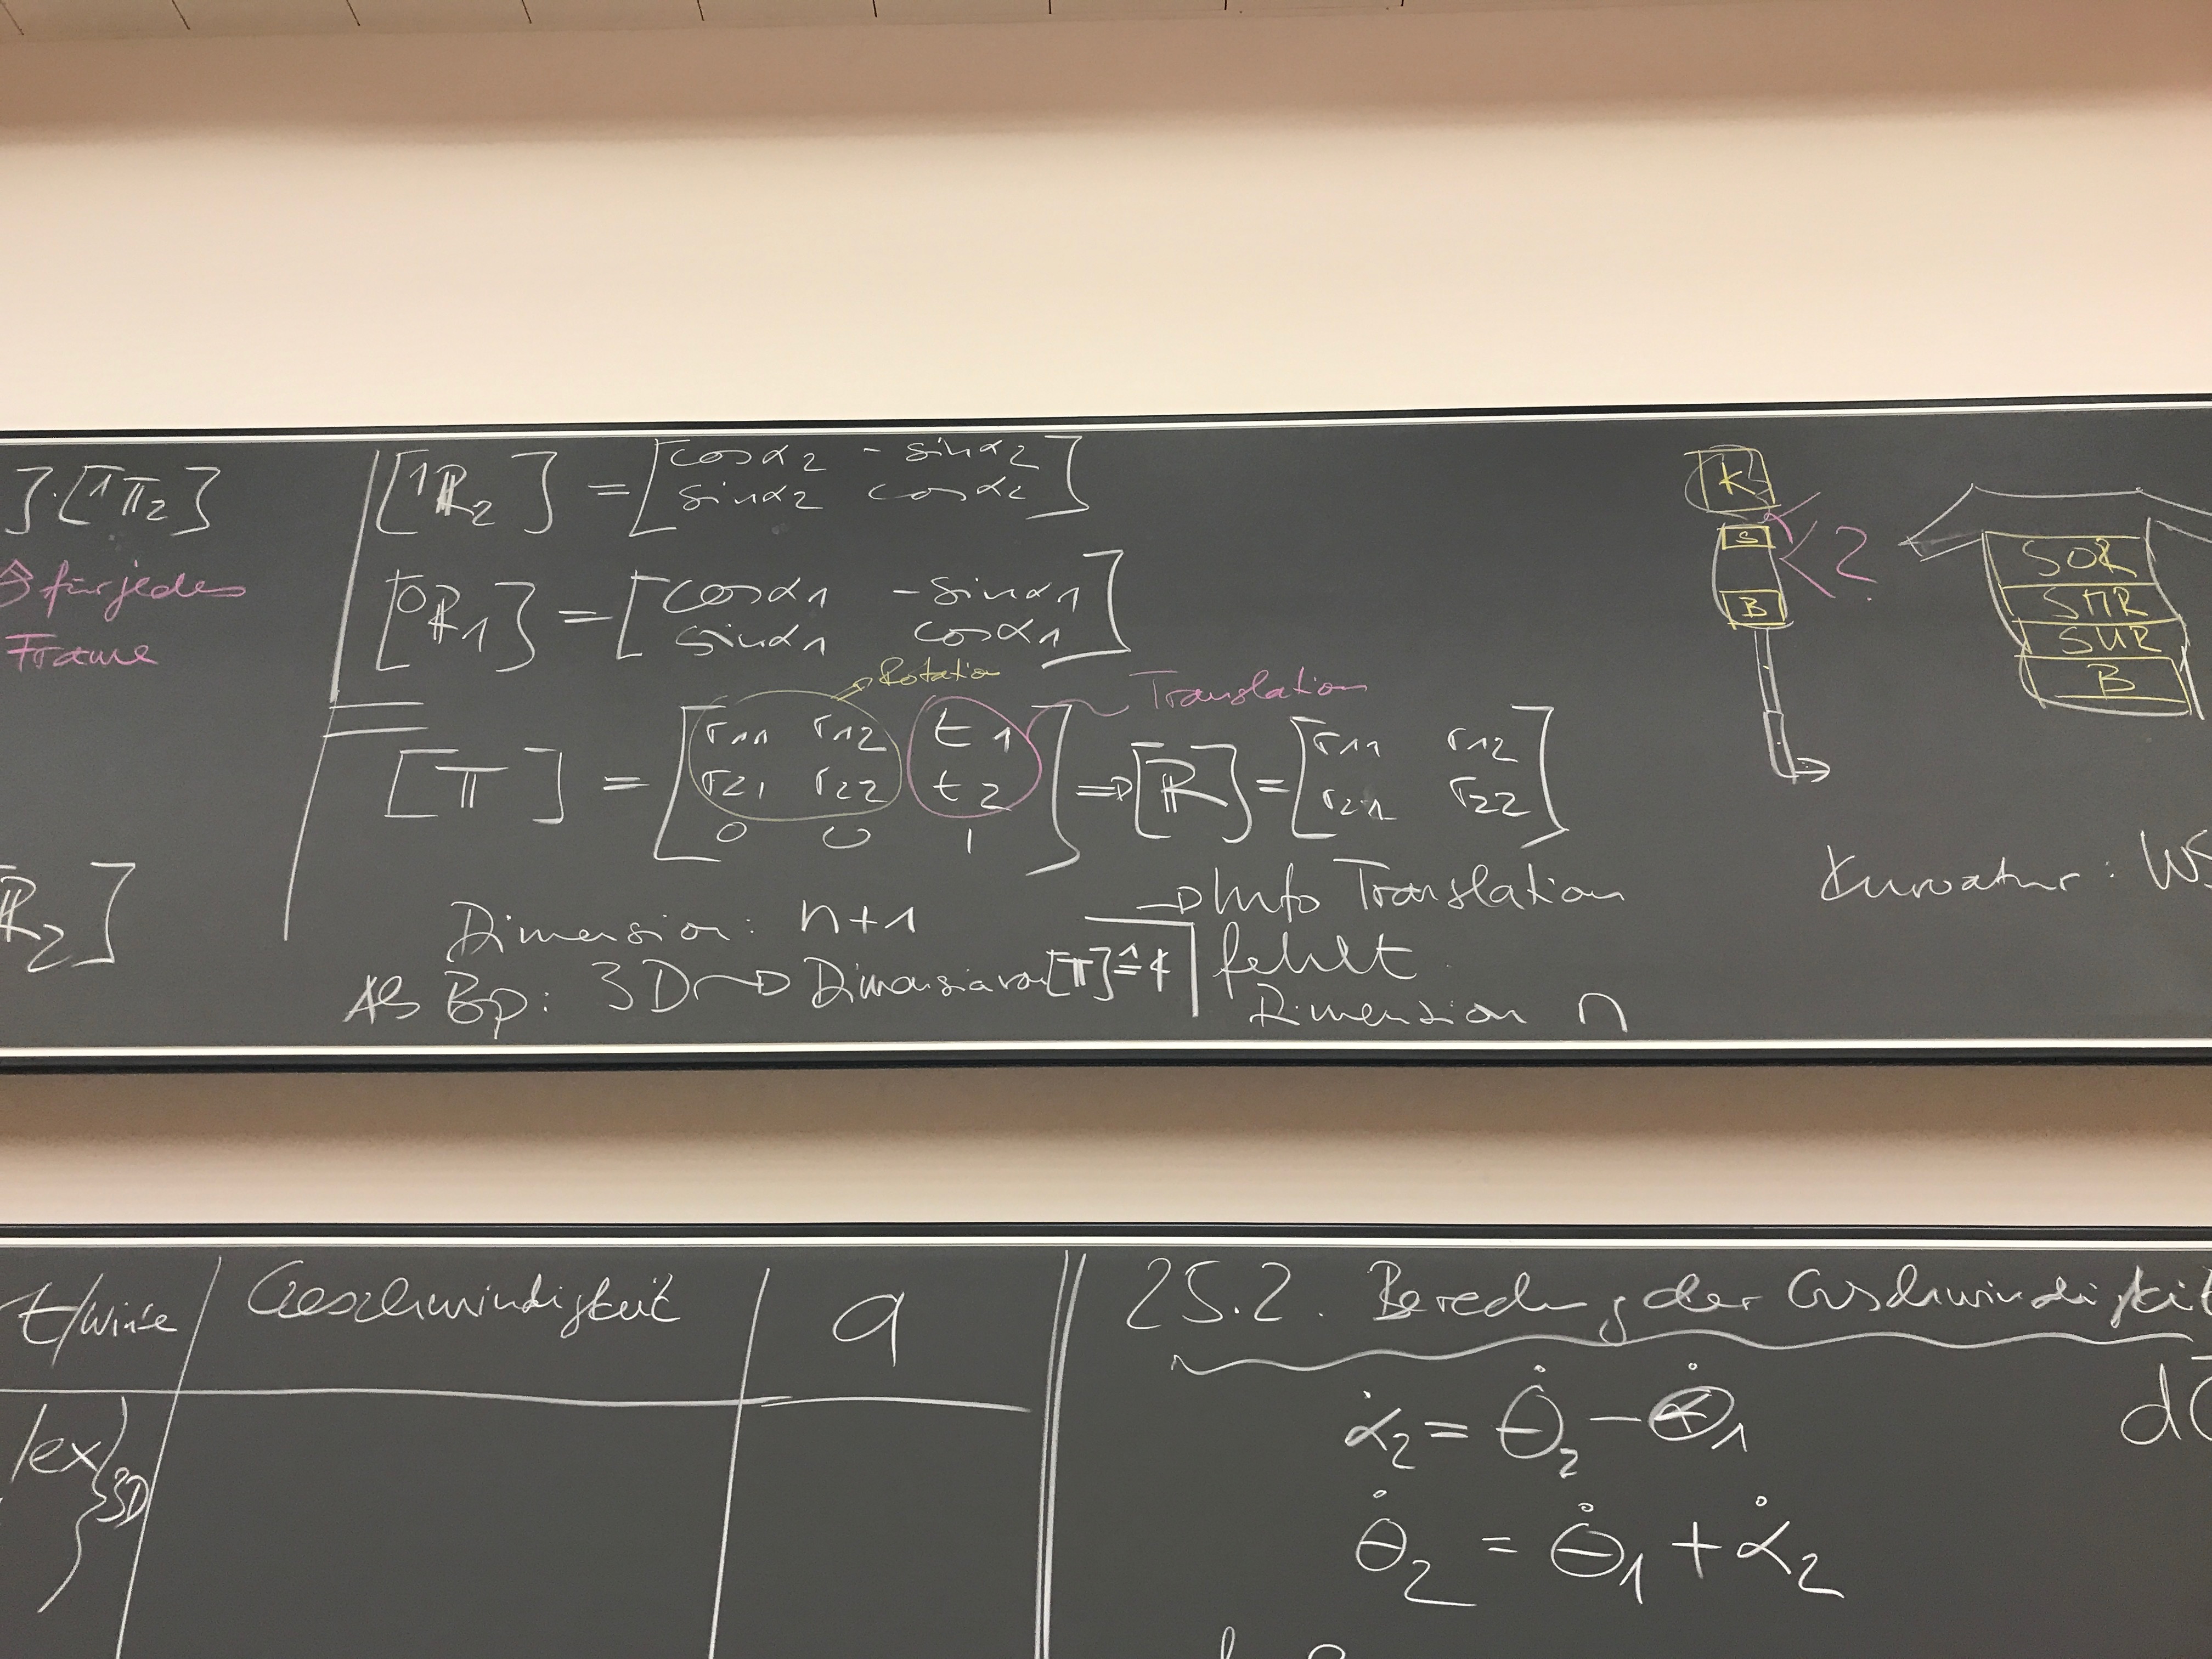 ]·[¹T₂]
für jedes
Frame
R₂]
[¹R₂] = [cosα₂ -sinα₂
sinα₂ cosα₂]
[⁰R₁] = [cosα₁ -sinα₁
sinα₁ cosα₁]
Rotation
Translation
[T] = [r₁₁ r₁₂ t₁
r₂₁ r₂₂ t₂
0 0 1]
⇒ [R] = [r₁₁ r₁₂
r₂₁ r₂₂]
Dimension: n+1
Als Bp: 3D → Dimension von [T] ≙ 4
→ Info Translation
fehlt
Dimension n
K
S
B
?
SOR
SMR
SUR
B
Kurvatur: WS
t/Winke
Geschwindigkeit
a
/ex)
3D
25.2. Berechnung der Geschwindigkeit
α̇₂ = θ̇₂ - θ̇₁
θ̇₂ = θ̇₁ + α̇₂